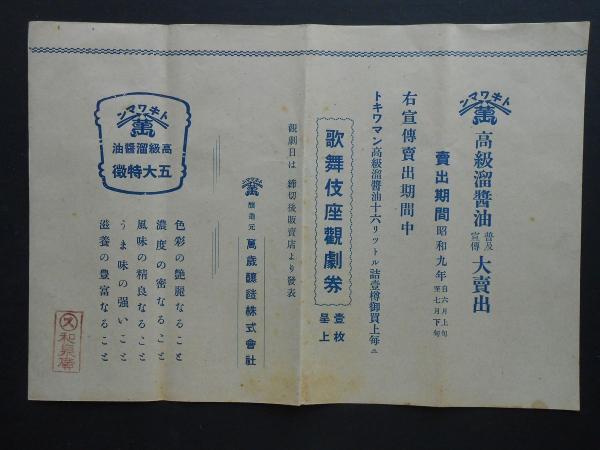 トキワマン
萬
高級溜醤油 普及宣傳 大賣出
賣出期間 昭和九年 自六月上旬 至七月下旬
右宣傳賣出期間中
トキワマン高級溜醤油十六リットル詰壹樽御買上毎ニ
歌舞伎座觀劇券 壹枚呈上
觀劇日は 締切後販賣店より發表
醸造元 萬歳醸造株式會社
トキワマン
萬
高級溜醤油
五大特徴
色彩の艶麗なること
濃度の密なること
風味の精良なること
うま味の强いこと
滋養の豊富なること
ス
和泉屋